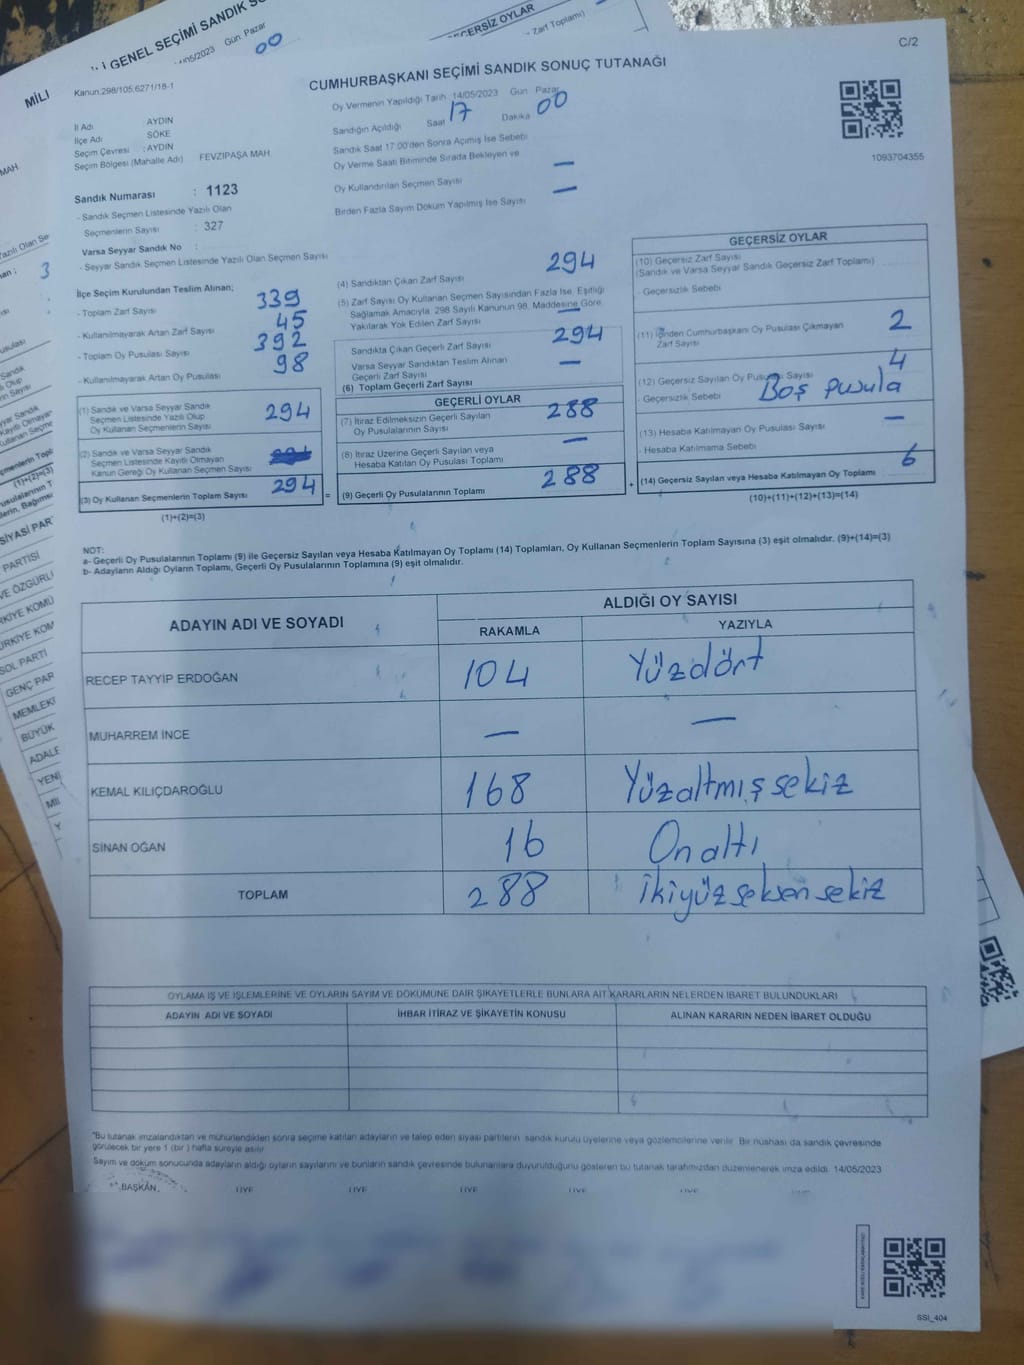 C/2
CUMHURBAŞKANI SEÇİMİ SANDIK SONUÇ TUTANAĞI
Kanun:298/105,6271/18-1
İl Adı : AYDIN
İlçe Adı : SÖKE
Seçim Çevresi : AYDIN
Seçim Bölgesi (Mahalle Adı) FEVZİPAŞA MAH.
Oy Vermenin Yapıldığı Tarih 14/05/2023 Gün Pazar
Sandığın Açıldığı Saat 17 Dakika 00
Sandık Saat 17.00'den Sonra Açımış İse Sebebi
Oy Verme Saati Bitiminde Sırada Bekleyen ve —
Oy Kullandırılan Seçmen Sayısı —
Birden Fazla Sayım Döküm Yapılmış İse Sayısı
1093704355
Sandık Numarası : 1123
- Sandık Seçmen Listesinde Yazılı Olan
Seçmenlerin Sayısı : 327
Varsa Seyyar Sandık No :
- Seyyar Sandık Seçmen Listesinde Yazılı Olan Seçmen Sayısı
İlçe Seçim Kurulundan Teslim Alınan;
- Toplam Zarf Sayısı 339
- Kullanılmayarak Artan Zarf Sayısı 45
- Toplam Oy Pusulası Sayısı 392
- Kullanılmayarak Artan Oy Pusulası 98
(1) Sandık ve Varsa Seyyar Sandık
Seçmen Listesinde Yazılı Olup
Oy Kullanan Seçmenlerin Sayısı 294
(2) Sandık ve Varsa Seyyar Sandık
Seçmen Listesinde Kayıtlı Olmayan
Kanun Gereği Oy Kullanan Seçmen Sayısı
(3) Oy Kullanan Seçmenlerin Toplam Sayısı 294 =
(1)+(2)=(3)
(4) Sandıktan Çıkan Zarf Sayısı 294
(5) Zarf Sayısı Oy Kullanan Seçmen Sayısından Fazla İse, Eşitliği
Sağlamak Amacıyla, 298 Sayılı Kanunun 98. Maddesine Göre
Yakılarak Yok Edilen Zarf Sayısı —
Sandıkta Çıkan Geçerli Zarf Sayısı 294
Varsa Seyyar Sandıktan Teslim Alınan
Geçerli Zarf Sayısı —
(6) Toplam Geçerli Zarf Sayısı
GEÇERLİ OYLAR
(7) İtiraz Edilmeksizin Geçerli Sayılan
Oy Pusulalarının Sayısı 288
(8) İtiraz Üzerine Geçerli Sayılan veya
Hesaba Katılan Oy Pusulası Toplamı —
(9) Geçerli Oy Pusulalarının Toplamı 288 +
GEÇERSİZ OYLAR
(10) Geçersiz Zarf Sayısı
(Sandık ve Varsa Seyyar Sandık Geçersiz Zarf Toplamı)
- Geçersizlik Sebebi
(11) İçinden Cumhurbaşkanı Oy Pusulası Çıkmayan
Zarf Sayısı 2
(12) Geçersiz Sayılan Oy Pusulası Sayısı 4
- Geçersizlik Sebebi Boş pusula
(13) Hesaba Katılmayan Oy Pusulası Sayısı —
- Hesaba Katılmama Sebebi
(14) Geçersiz Sayılan veya Hesaba Katılmayan Oy Toplamı 6
(10)+(11)+(12)+(13)=(14)
NOT:
a- Geçerli Oy Pusulalarının Toplamı (9) ile Geçersiz Sayılan veya Hesaba Katılmayan Oy Toplamı (14) Toplamları, Oy Kullanan Seçmenlerin Toplam Sayısına (3) eşit olmalıdır. (9)+(14)=(3)
b- Adayların Aldığı Oyların Toplamı, Geçerli Oy Pusulalarının Toplamına (9) eşit olmalıdır.
ADAYIN ADI VE SOYADI ALDIĞI OY SAYISI
RAKAMLA YAZIYLA
RECEP TAYYİP ERDOĞAN 104 Yüzdört
MUHARREM İNCE — —
KEMAL KILIÇDAROĞLU 168 Yüzaltmışsekiz
SİNAN OĞAN 16 Onaltı
TOPLAM 288 İkiyüzseksensekiz
OYLAMA İŞ VE İŞLEMLERİNE VE OYLARIN SAYIM VE DÖKÜMÜNE DAİR ŞİKAYETLERLE BUNLARA AİT KARARLARIN NELERDEN İBARET BULUNDUKLARI
ADAYIN ADI VE SOYADI İHBAR İTİRAZ VE ŞİKAYETİN KONUSU ALINAN KARARIN NEDEN İBARET OLDUĞU
*Bu tutanak imzalandıktan ve mühürlendikten sonra seçime katılan adayların ve talep eden siyasi partilerin sandık kurulu üyelerine veya gözlemcilerine verilir. Bir nüshası da sandık çevresinde
görülecek bir yere 1 (bir) hafta süreyle asılır.
Sayım ve döküm sonucunda adayların aldığı oyların sayılarını ve bunların sandık çevresinde bulunanlara duyurulduğunu gösteren bu tutanak tarafımızdan düzenlenerek imza edildi. 14/05/2023
BAŞKAN ÜYE ÜYE ÜYE ÜYE ÜYE
SSI_404